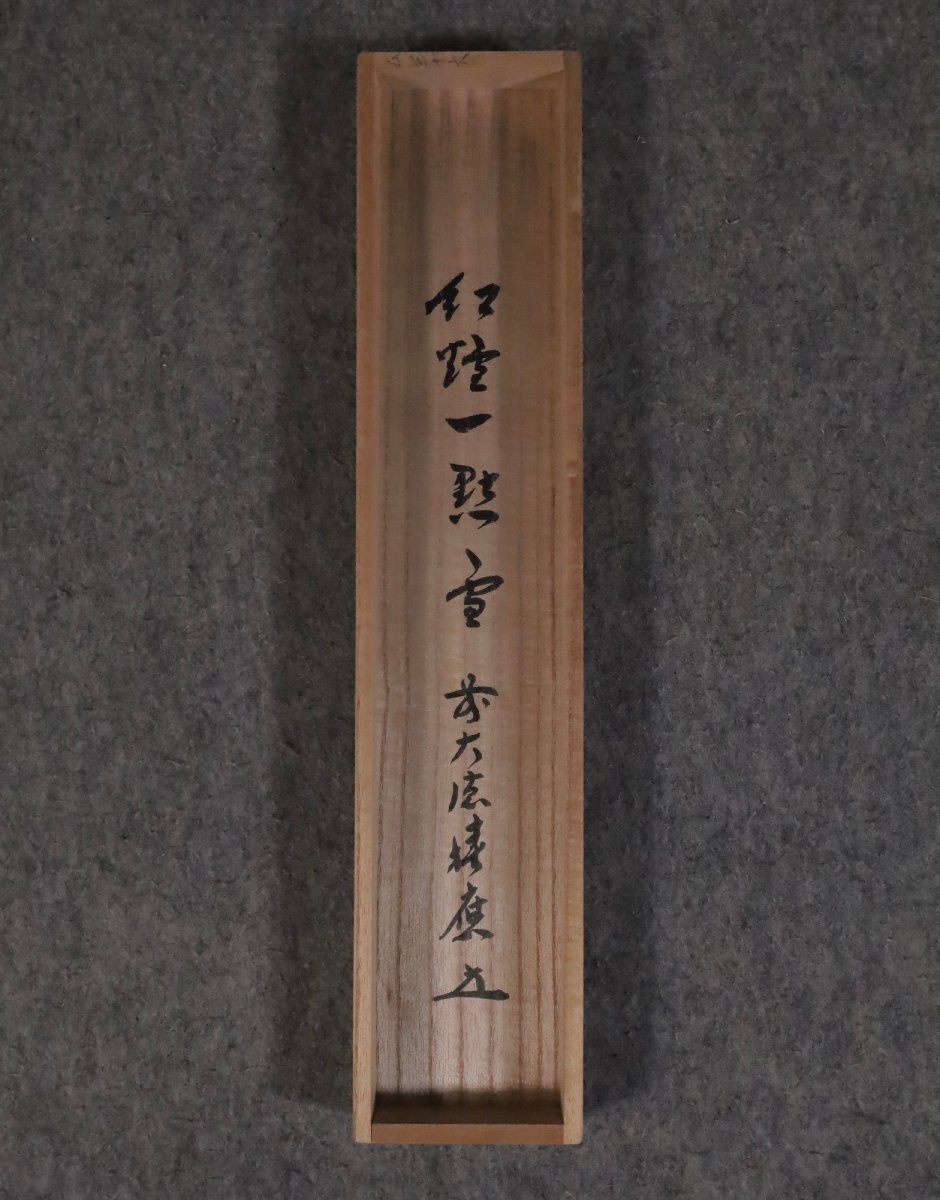 紅爐一點雪 前大徳積應